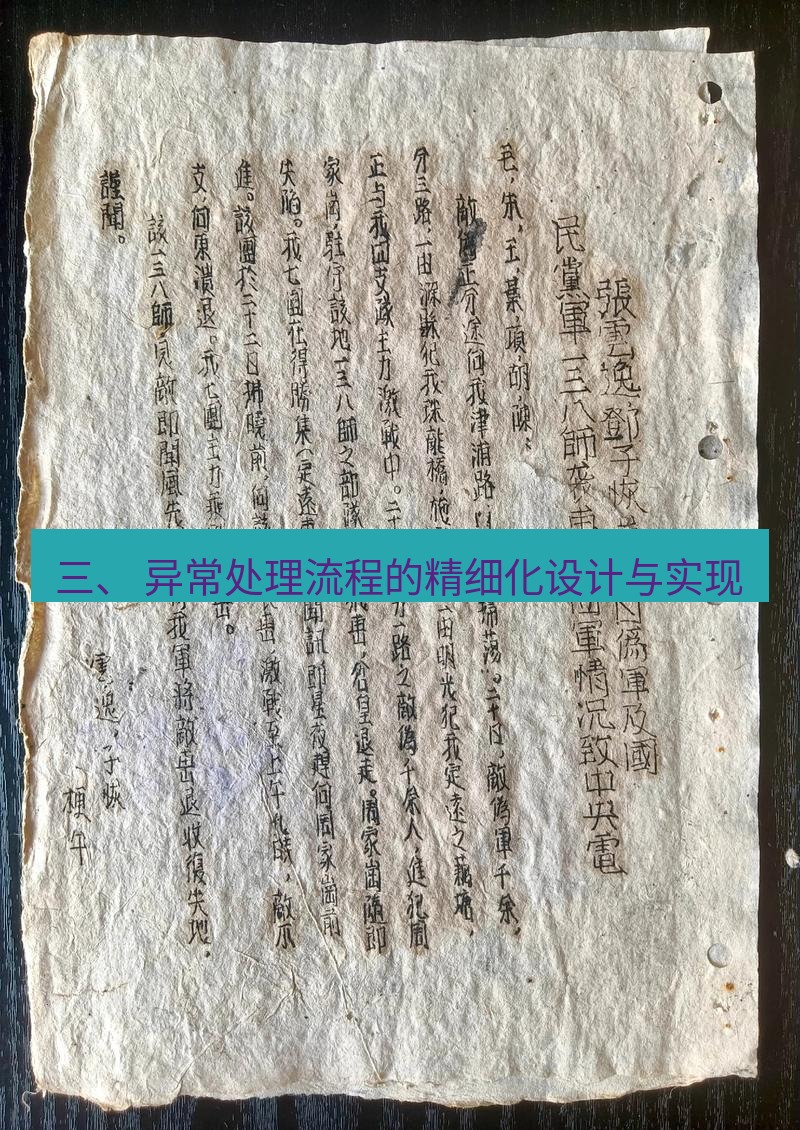 張雲逸鄧子恢
偽軍及國
民黨軍一三八師襲
軍情況致中央電
毛,朱,王,葉,項,胡,陳:
敵
正分途向我津浦路
掃蕩。二十日,敵偽軍千余,
分三路,一由滁
犯我珠龍橋,施
一由明光犯我定遠之藕塘,
正与我四支戓主力激戰中。二十
一路之敵偽千余人,進犯周
家崗,駐守該地一三八師之部隊
退走。周家崗隨即
失陷。我七團在得勝集(定遠
聞訊即星夜趕向周家崗前
進。該團於二十二日拂曉前,向
激戰至上午九時,敵不
支,向東潰退。我七團主力乘
擊。
該一三八師,見敵即聞風先
我軍將敵擊退收復失地,
謹聞。
雲逸,子恢
梗午
三、 异常处理流程的精细化设计与实现